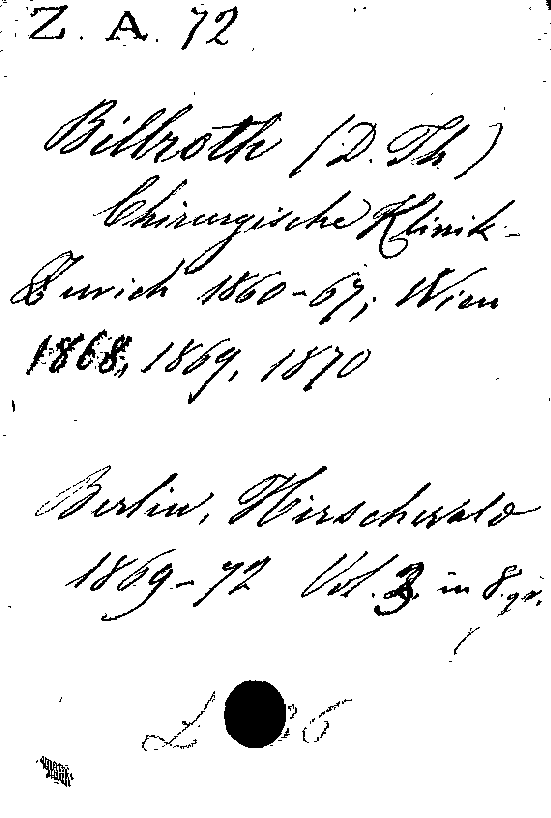 Z. A. 72
Billroth (D. Th)
Chirurgische Klinik-
Zurich 1860-67; Wien
1868, 1869, 1870
Berlin, Hirschwald
1869-72 Vol. 3 in 8. gr.
L 36